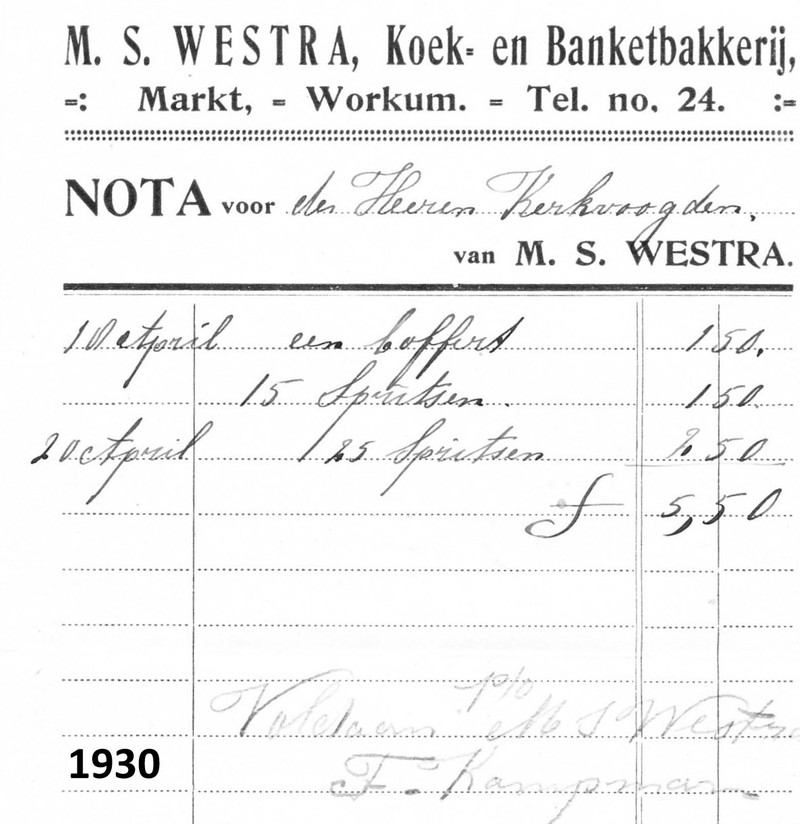 M. S. WESTRA, Koek- en Banketbakkerij,
=: Markt, = Workum. = Tel. no. 24. :=
NOTA voor der Heeren Kerkvoogden,
van M. S. WESTRA.
10 April een boffert 1 50.
15 Spritsen. 1 50.
20 April 25 Spritsen 2 50
f 5,50
p/o
Voldaan M S Westra
F. Kampman
1930